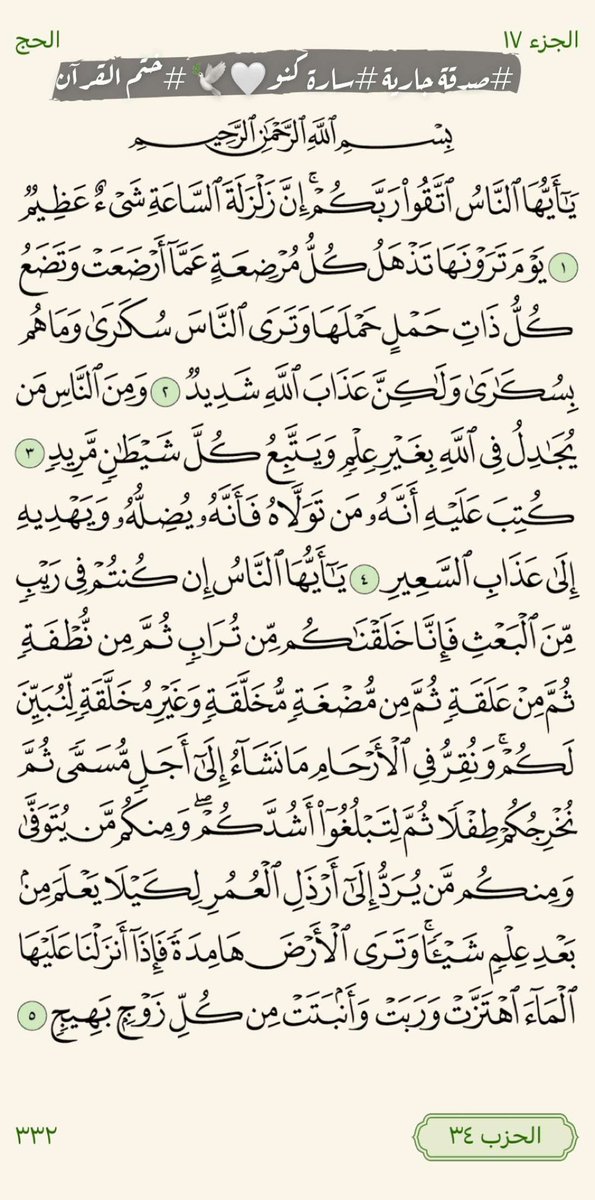 الجزء ١٧
الحج
#صدقة جارية #سارة كنو🤍🕊️ #ختم القرآن
بِسْمِ ٱللَّهِ ٱلرَّحْمَٰنِ ٱلرَّحِيمِ
يَٰٓأَيُّهَا ٱلنَّاسُ ٱتَّقُوا۟ رَبَّكُمْ ۚ إِنَّ زَلْزَلَةَ ٱلسَّاعَةِ شَىْءٌ عَظِيمٌ
١ يَوْمَ تَرَوْنَهَا تَذْهَلُ كُلُّ مُرْضِعَةٍ عَمَّآ أَرْضَعَتْ وَتَضَعُ
كُلُّ ذَاتِ حَمْلٍ حَمْلَهَا وَتَرَى ٱلنَّاسَ سُكَٰرَىٰ وَمَا هُم
بِسُكَٰرَىٰ وَلَٰكِنَّ عَذَابَ ٱللَّهِ شَدِيدٌ ٢ وَمِنَ ٱلنَّاسِ مَن
يُجَٰدِلُ فِى ٱللَّهِ بِغَيْرِ عِلْمٍ وَيَتَّبِعُ كُلَّ شَيْطَٰنٍ مَّرِيدٍ ٣
كُتِبَ عَلَيْهِ أَنَّهُۥ مَن تَوَلَّاهُ فَأَنَّهُۥ يُضِلُّهُۥ وَيَهْدِيهِ
إِلَىٰ عَذَابِ ٱلسَّعِيرِ ٤ يَٰٓأَيُّهَا ٱلنَّاسُ إِن كُنتُمْ فِى رَيْبٍ
مِّنَ ٱلْبَعْثِ فَإِنَّا خَلَقْنَٰكُم مِّن تُرَابٍ ثُمَّ مِن نُّطْفَةٍ
ثُمَّ مِنْ عَلَقَةٍ ثُمَّ مِن مُّضْغَةٍ مُّخَلَّقَةٍ وَغَيْرِ مُخَلَّقَةٍ لِّنُبَيِّنَ
لَكُمْ ۚ وَنُقِرُّ فِى ٱلْأَرْحَامِ مَا نَشَآءُ إِلَىٰٓ أَجَلٍ مُّسَمًّى ثُمَّ
نُخْرِجُكُمْ طِفْلًا ثُمَّ لِتَبْلُغُوٓا۟ أَشُدَّكُمْ ۖ وَمِنكُم مَّن يُتَوَفَّىٰ
وَمِنكُم مَّن يُرَدُّ إِلَىٰٓ أَرْذَلِ ٱلْعُمُرِ لِكَيْلَا يَعْلَمَ مِنۢ
بَعْدِ عِلْمٍ شَيْـًٔا ۚ وَتَرَى ٱلْأَرْضَ هَامِدَةً فَإِذَآ أَنزَلْنَا عَلَيْهَا
ٱلْمَآءَ ٱهْتَزَّتْ وَرَبَتْ وَأَنۢبَتَتْ مِن كُلِّ زَوْجٍۭ بَهِيجٍ ٥
الحزب ٣٤
٣٣٢